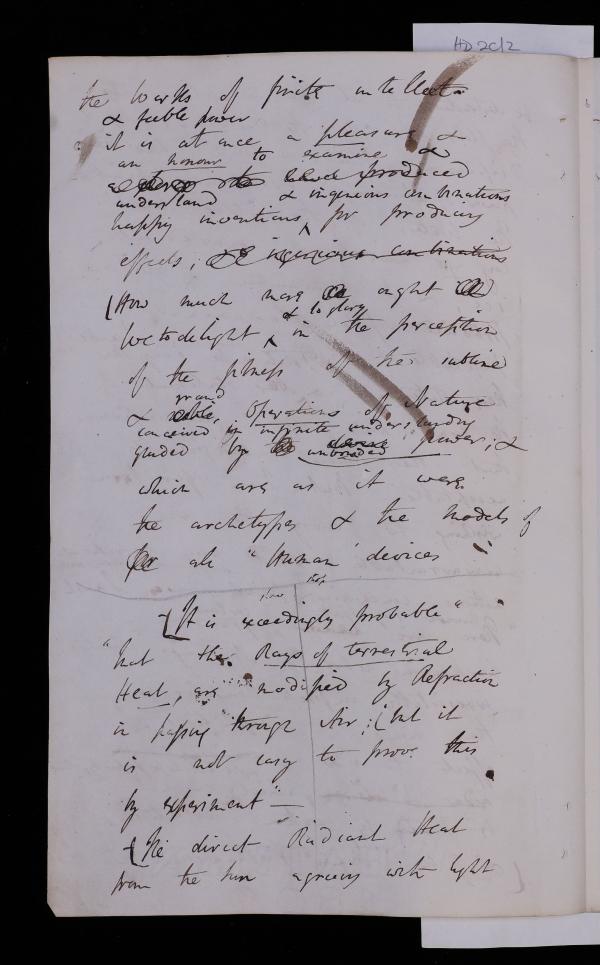 HD 2c/2
the works of finite intellect
& feeble power
it is at once a pleasure &
an honour to examine &
produced
understand & ingenious combinations
happy inventions for producing
effects; & ingenious combinations
How much more ought
we to delight & to glory in the perception
of the fitness of the sublime
grand
& noble, operations of Nature
conceived in infinite understanding
guided by unbounded power; &
which are as it were
the archetypes & the models of
all "Human devices
It is exceedingly probable"
"that the Rays of terrestrial
Heat, are modified by Refraction
in passing through Air; but it
is not easy to prove this
by experiment"—
The direct Radiant Heat
from the Sun agreeing with light